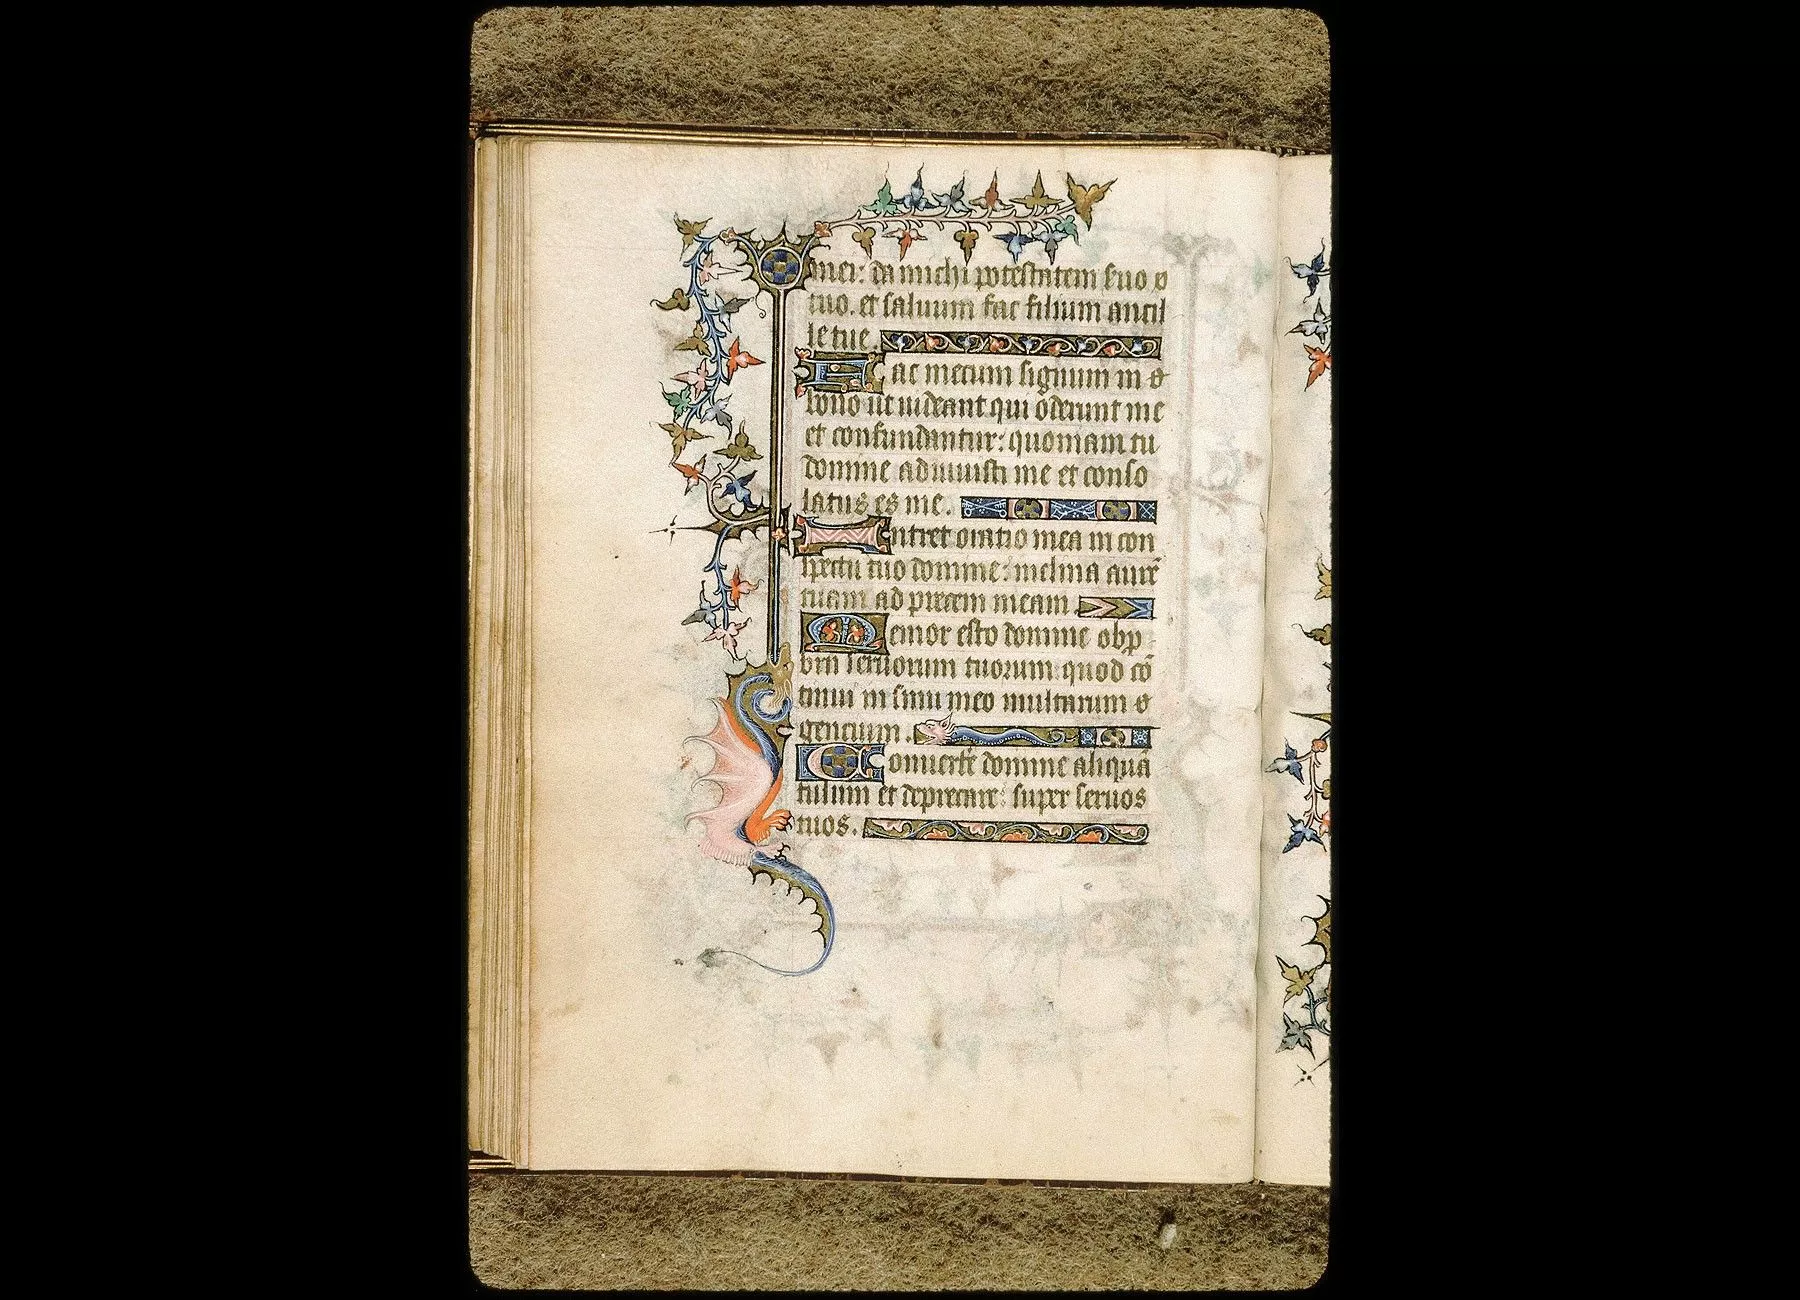 mei: da michi potestatem suo o
tuo. et saluum fac filium ancil
le tue.
Fac mecum signum in o
bono ut uideant qui oderunt me
et confundantur: quoniam tu
domine adiuuisti me et conso
latus es me.
Intret oratio mea in con
spectu tuo domine: inclina aurē
tuam ad precem meam.
Memor esto domine obp
brii seruorum tuorum: quod cō
tinui in sinu meo multarum o
gencium.
Conuerte domine aliqua
tulum et deprecare: super seruos
tuos.